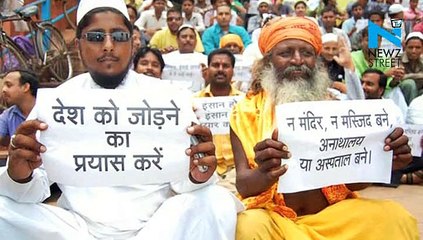 NEWZ
STREET
देश को जोड़ने
का
प्रयास करें
न मंदिर, न मस्जिद बने,
अनाथालय
या अस्पताल बने।